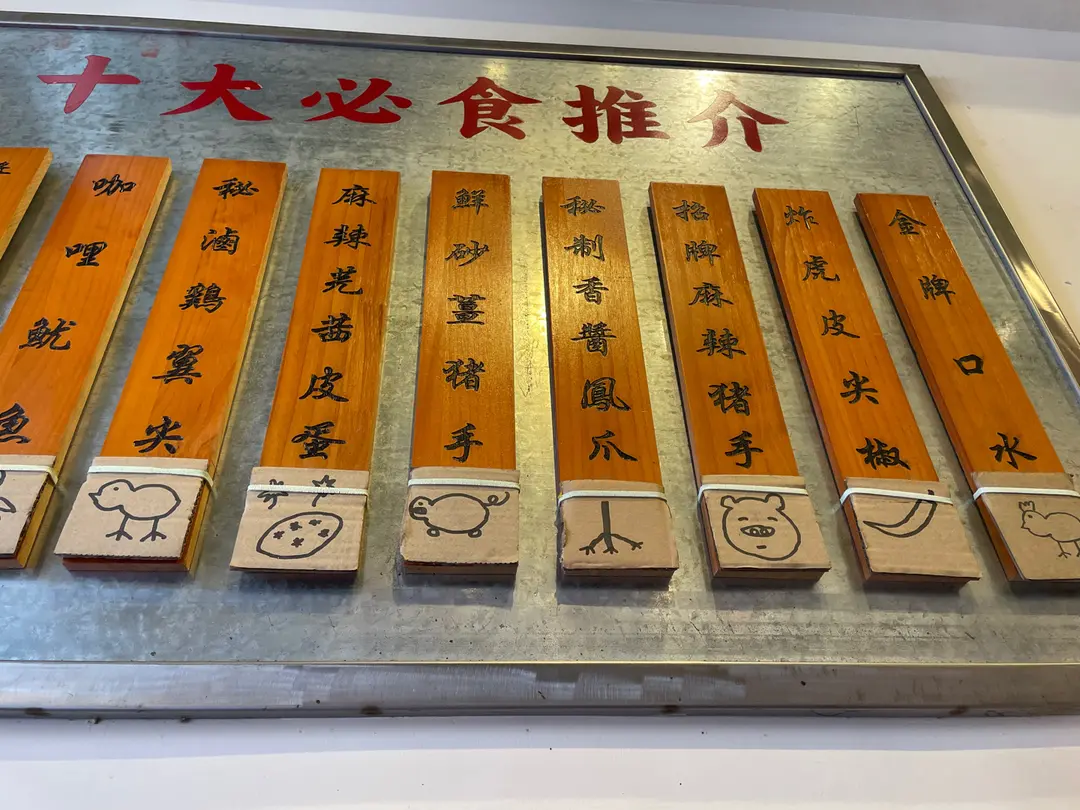 十大必食推介
金牌口水
炸虎皮尖椒
招牌麻辣猪手
秘制香醬鳳爪
鮮砂薑猪手
麻辣芫茜皮蛋
秘滷鷄翼尖
咖哩魷魚